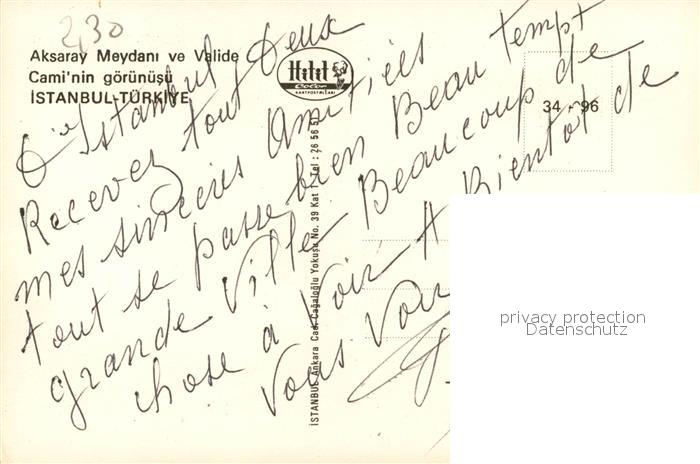 230
Aksaray Meydanı ve Valide
Cami'nin görünüşü
İSTANBUL-TÜRKİYE
Hitit
Color
KARTPOSTALLARI
34 - 96
İSTANBUL Ankara Cad. Cağaloğlu Yokuşu No. 39 Kat 1 Tel : 26 56 51
D'Istanbul
Recevez tout Deux
mes sincères Amitiées
tout se passe bien Beau tempt
grande Ville Beaucoup de
chose à Voir A Bientôt de
Vous Voir
privacy protection
Datenschutz